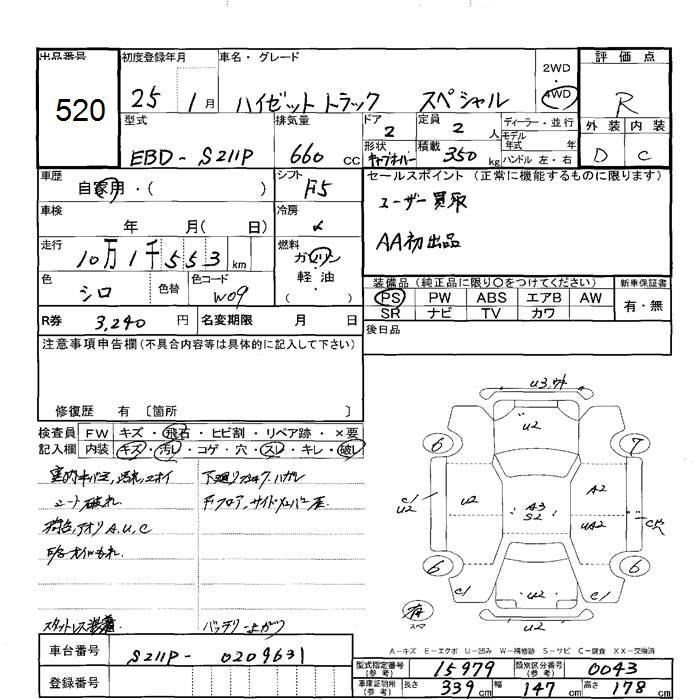 出品番号
520
初度登録年月
25 1月
車名・グレード
ハイゼット トラック スペシャル
2WD
4WD
評価点
R
外装 内装
D C
型式
EBD-S211P
排気量
660 cc
ドア
2
定員
2 人
ディーラー・並行
モデル年式 年
形状
積載
350 kg
ハンドル 左・右
車歴
自家用・( )
シフト
F5
セールスポイント (正常に機能するものに限ります)
ユーザー買取
AA初出品
車検
年 月( 日)
冷房
走行
10万1千553 km
燃料
ガソリン
軽油
( )
色
シロ
色替
色コード
W09
装備品(純正品に限り○をつけてください)
新車保証書
PS PW ABS エアB AW
有・無
SR ナビ TV カワ
R券 3,240 円
名変期限 月 日
後日品
注意事項申告欄(不具合内容等は具体的に記入して下さい)
修復歴 有 〔箇所 〕
検査員記入欄
FW キズ・飛石・ヒビ割・リペア跡・×要
内装 キズ・汚レ・コゲ・穴・スレ・キレ・破レ
シート破れ
荷台,アオリA.U.C
下廻り
スタットレス装着
バッテリー上がり
車台番号
S211P-0209631
登録番号
U2
6 7
C1
U2
U2
A3
S2
A2
UA2
6 6
C1
U2
C1
スペア
A-キズ E-エクボ U-凹み W-補修跡 S-サビ C-腐食 XX-交換済
型式指定番号(参考) 15979
類別区分番号(参考) 0043
車庫証明用(参考) 長さ 339cm 幅 147cm 高さ 178cm